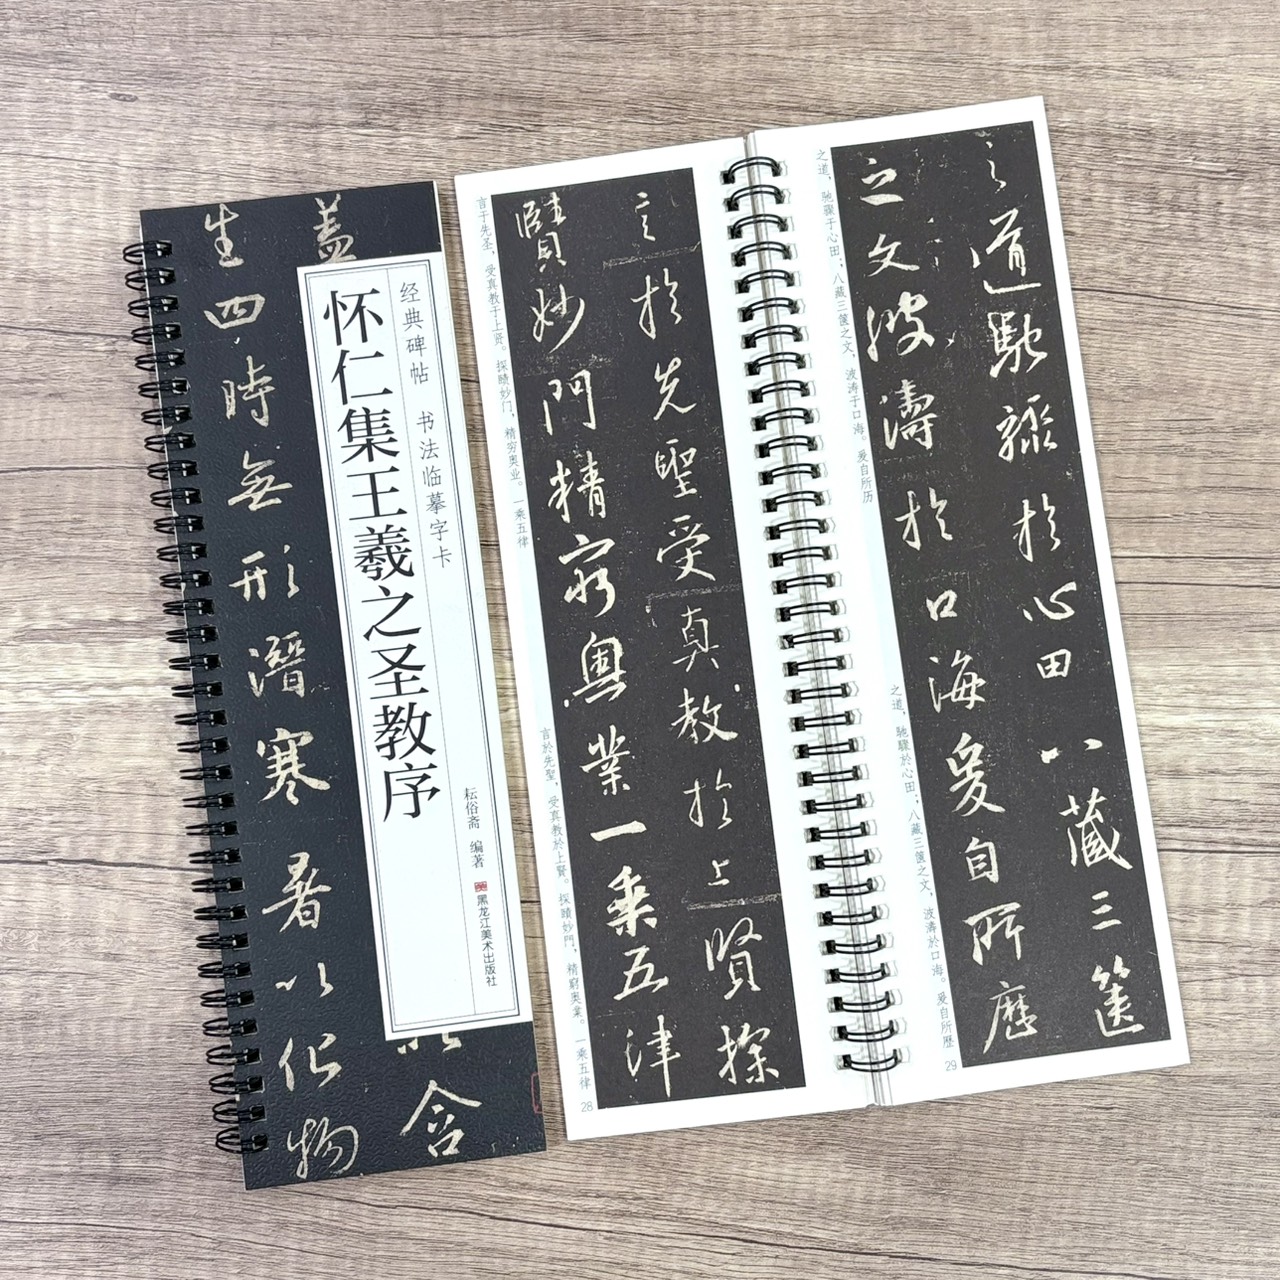 蓋
生四時無形潛寒暑以化物
含
经典碑帖 书法临摹字卡
怀仁集王羲之圣教序
耘俗斋 编著
黑龙江美术出版社
言於先聖受真教於上賢探
賾妙門精窮奧業一乘五律
言于先圣，受真教于上贤。探赜妙门，精穷奥业。一乘五律
言於先聖，受真教於上賢。探賾妙門，精窮奧業。一乘五律
28
之道馳驟於心田八藏三篋
之文波濤於口海爰自所歷
之道，驰骤于心田；八藏三箧之文，波涛于口海。爰自所历
之道，馳驟於心田；八藏三篋之文，波濤於口海。爰自所歷
29